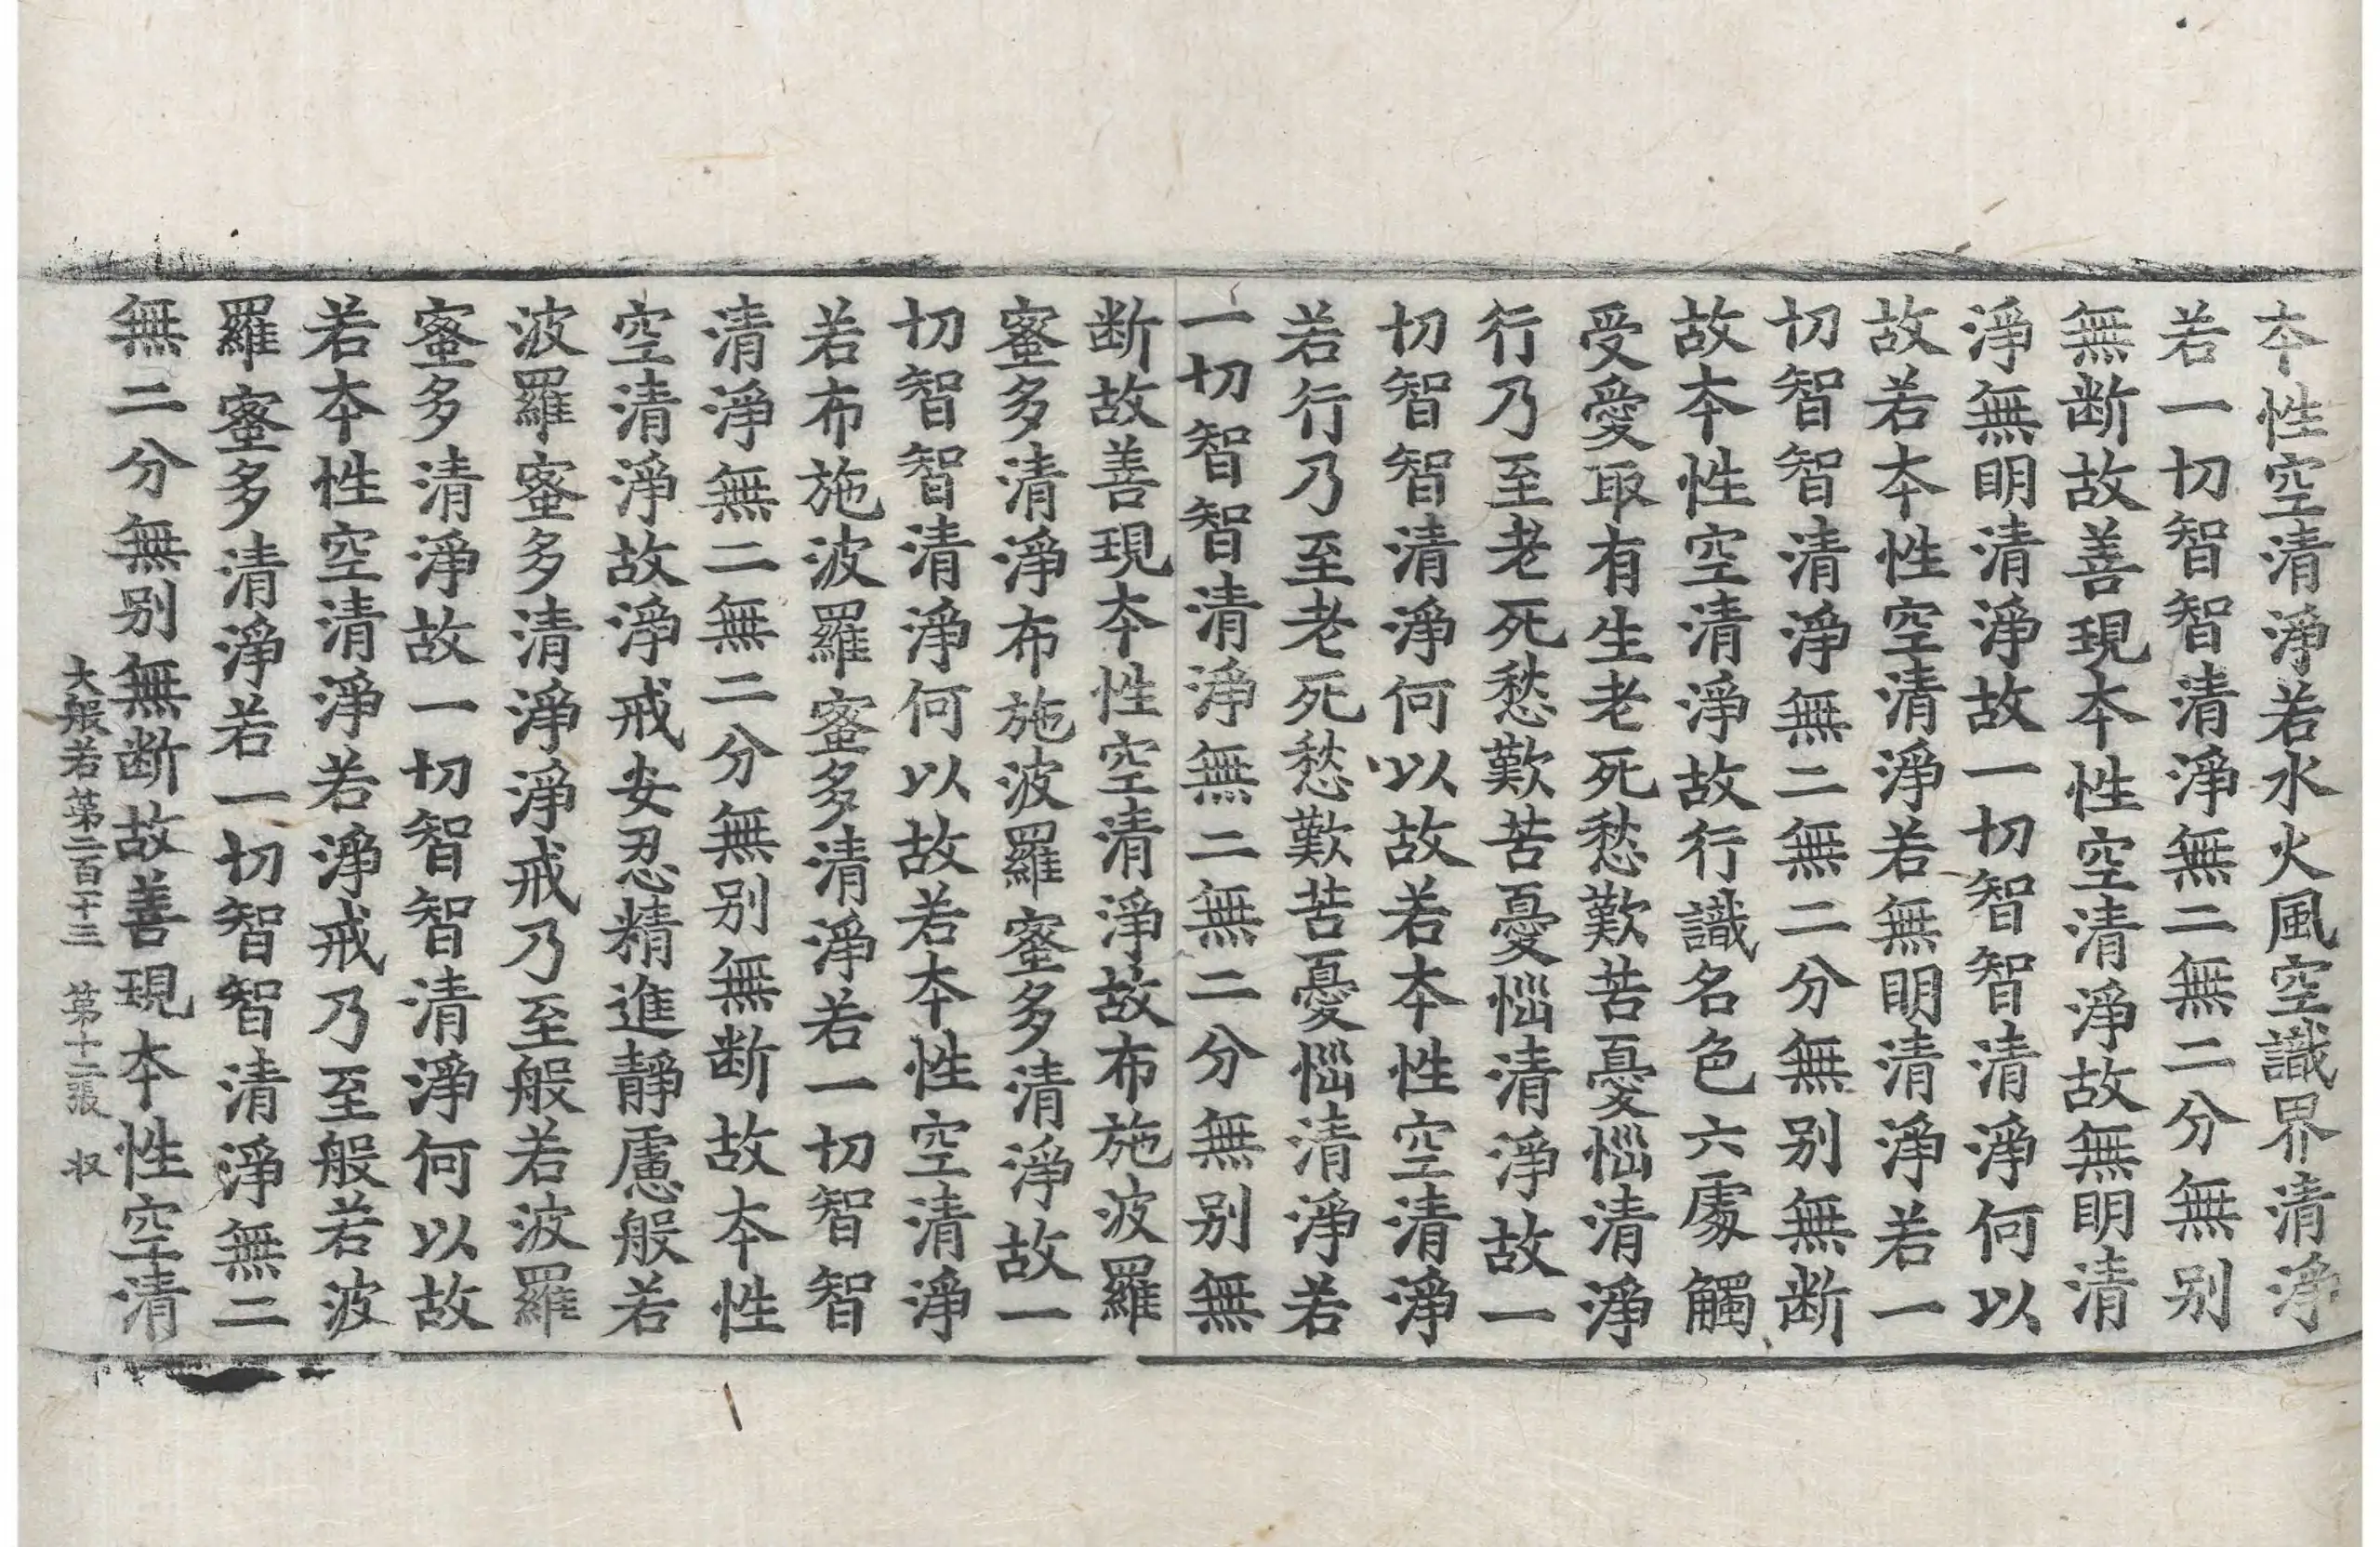 夲性空清淨若水火風空識界清淨
若一切智智清淨無二無二分無别
無断故善現夲性空清淨故無明清
淨無明清淨故一切智智清淨何以
故若夲性空清淨若無明清淨若一
切智智清淨無二無二分無别無断
故夲性空清淨故行識名色六處觸
受愛取有生老死愁歎苦憂惱清淨
行乃至老死愁歎苦憂惱清淨故一
切智智清淨何以故若夲性空清淨
若行乃至老死愁歎苦憂惱清淨若
一切智智清淨無二無二分無别無
断故善現夲性空清淨故布施波羅
蜜多清淨布施波羅蜜多清淨故一
切智智清淨何以故若夲性空清淨
若布施波羅蜜多清淨若一切智智
清淨無二無二分無别無断故夲性
空清淨故淨戒安忍精進靜慮般若
波羅蜜多清淨淨戒乃至般若波羅
蜜多清淨故一切智智清淨何以故
若夲性空清淨若淨戒乃至般若波
羅蜜多清淨若一切智智清淨無二
無二分無别無断故善現夲性空清
大般若第二百十三 第十二張 奴